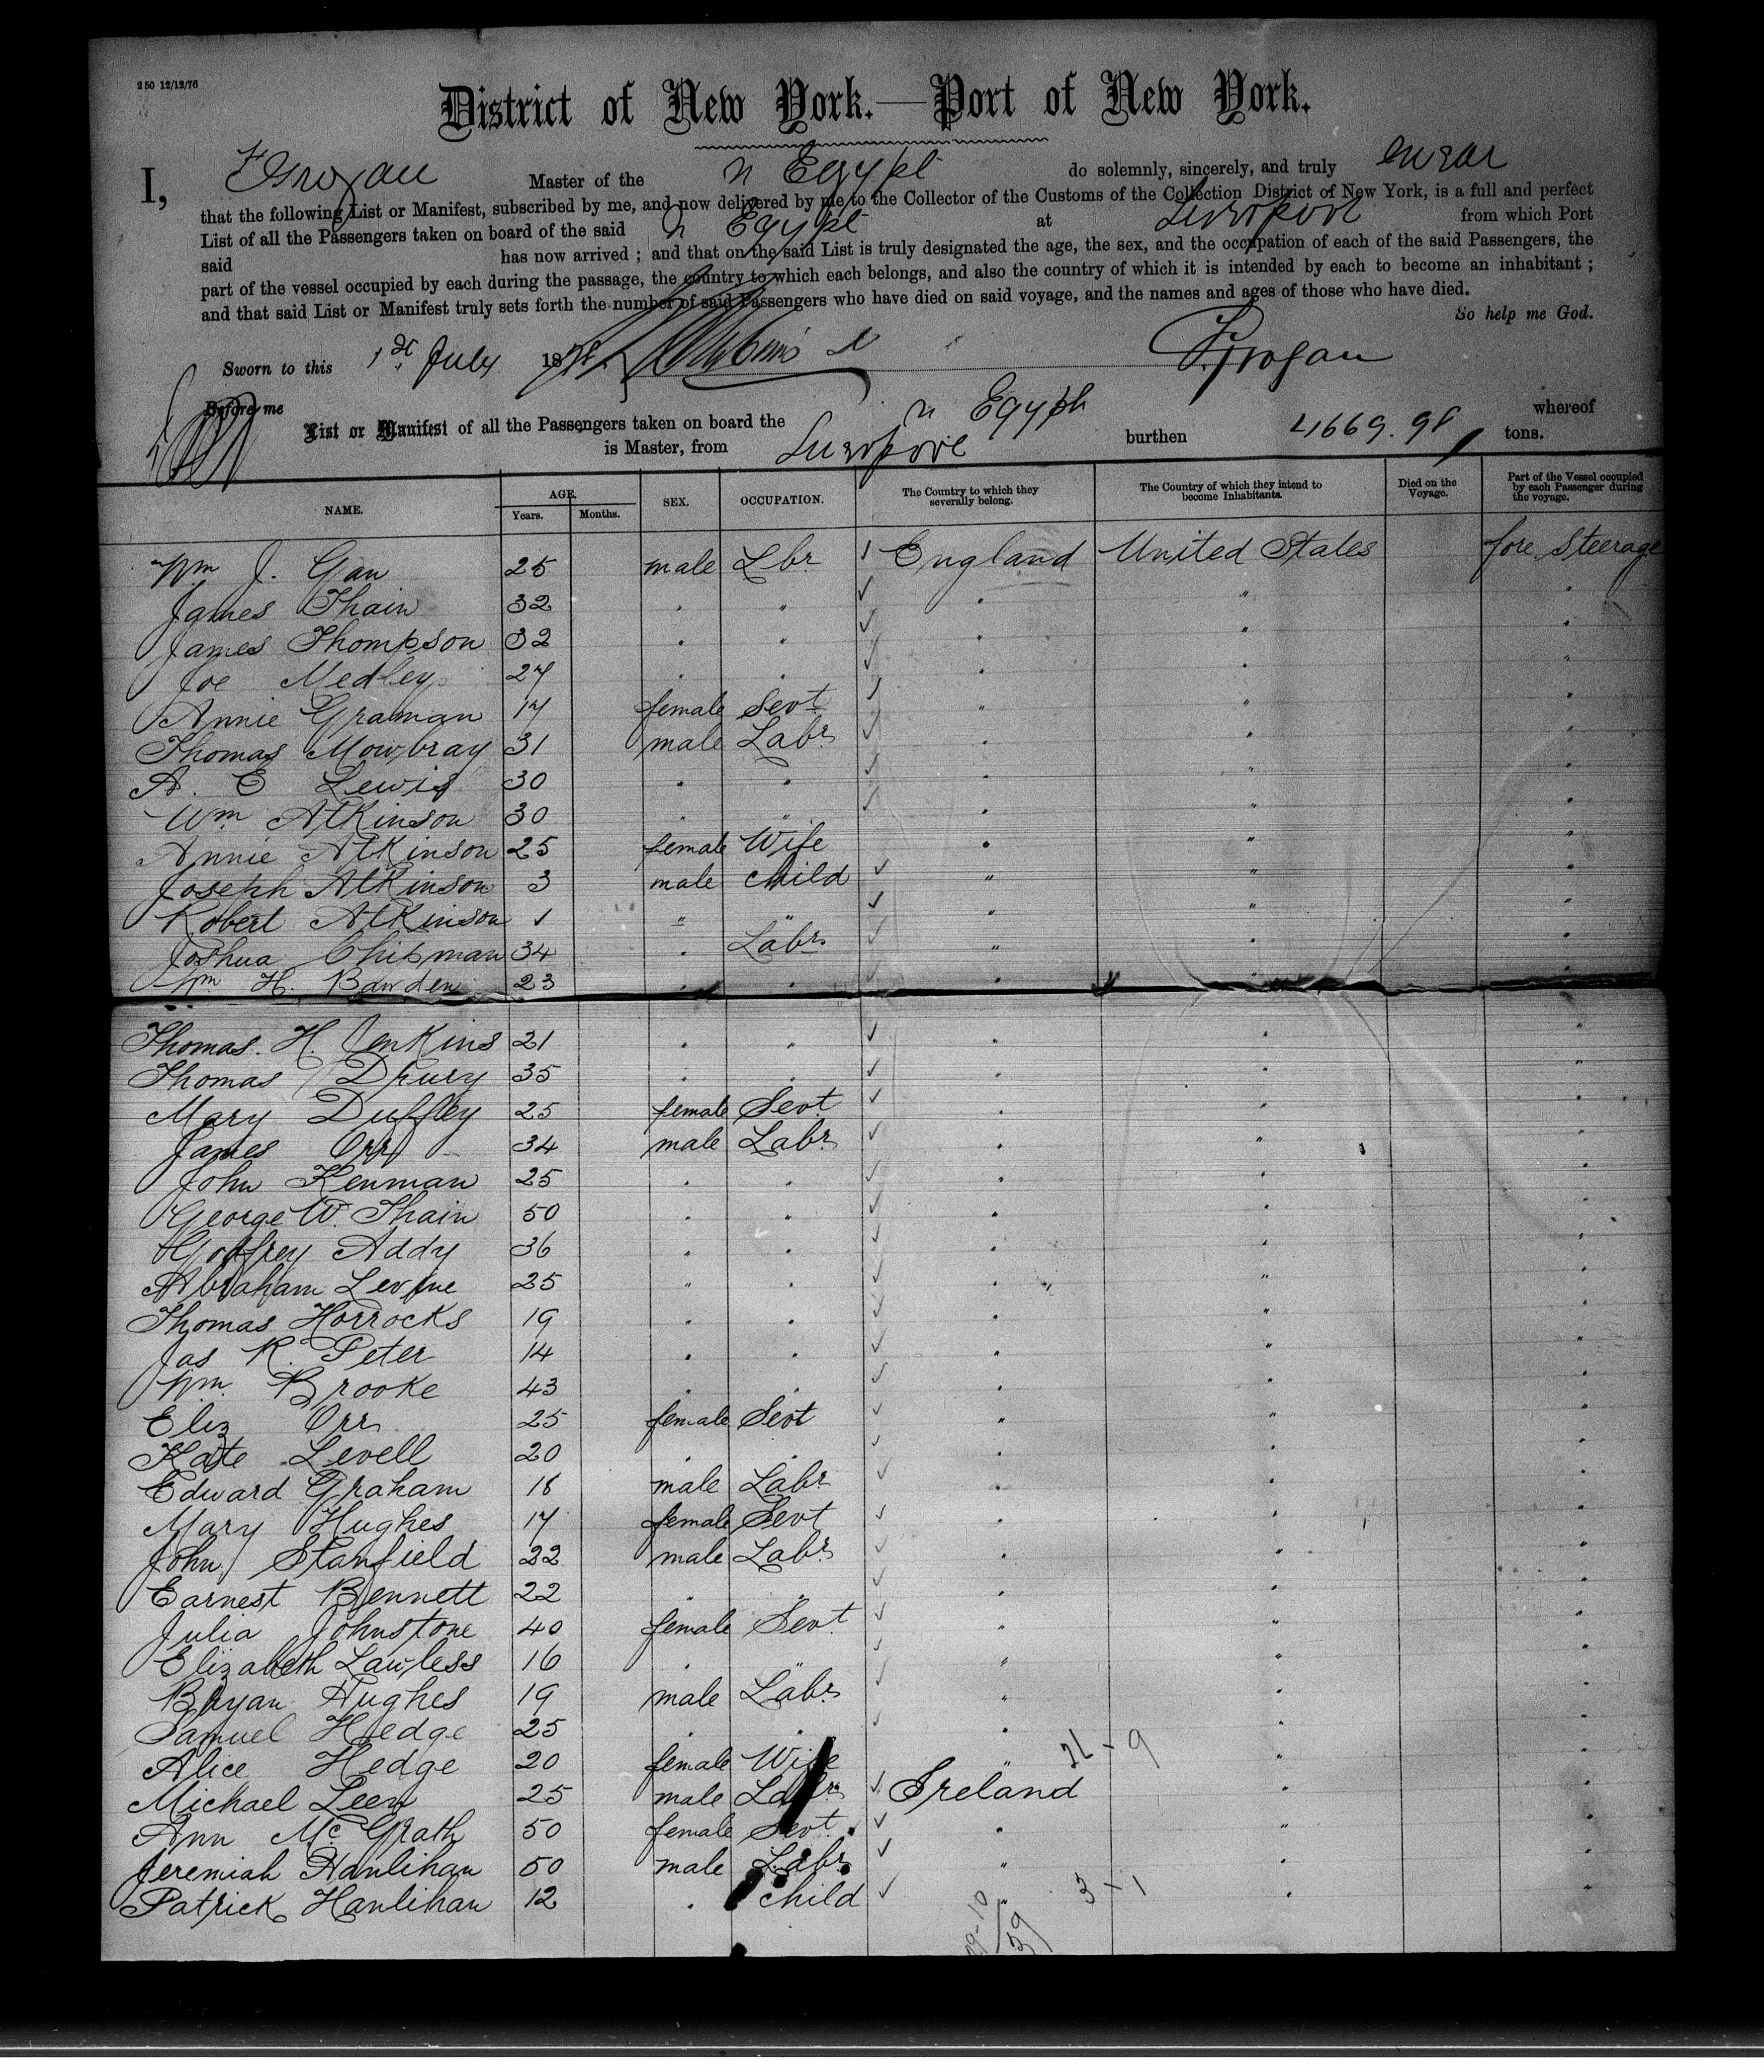 250 12/12/76
District of New York.—Port of New York.
I, F Grogan Master of the n Egypt do solemnly, sincerely, and truly swear
that the following List or Manifest, subscribed by me, and now delivered by me to the Collector of the Customs of the Collection District of New York, is a full and perfect
List of all the Passengers taken on board of the said n Egypt at Liverpool from which Port
said has now arrived ; and that on the said List is truly designated the age, the sex, and the occupation of each of the said Passengers, the
part of the vessel occupied by each during the passage, the country to which each belongs, and also the country of which it is intended by each to become an inhabitant ;
and that said List or Manifest truly sets forth the number of said Passengers who have died on said voyage, and the names and ages of those who have died.
So help me God.
Sworn to this 1st July 18 Grogan
Before me
List or Manifest of all the Passengers taken on board the n Egypt whereof
is Master, from Liverpool burthen 4669.98 tons.
NAME. AGE. SEX. OCCUPATION. The Country to which they severally belong. The Country of which they intend to become Inhabitants. Died on the Voyage. Part of the Vessel occupied by each Passenger during the voyage.
Years. Months.
Wm J. Gan 25 male Lbr ✓ England United States fore Steerage
James Thain 32 . " ✓ . " .
James Thompson 32 . " ✓ . " .
Joe Medley 27 . . ✓ . . "
Annie Graman 17 female Sevt ✓ " " .
Thomas Mowbray 31 male Labr ✓ . " .
A. E Lewis 30 . . ✓ . " .
Wm Atkinson 30 . " ✓ . " .
Annie Atkinson 25 female Wife . " .
Joseph Atkinson 3 male child ✓ " " .
Robert Atkinson 1 " " ✓ " " .
Joshua Chipman 34 . Labr ✓ " . .
Wm H. Bawden 23 . . ✓ . . .
Thomas. H. Jenkins 21 . " ✓ . . .
Thomas Drury 35 . . ✓ . . "
Mary Duffley 25 female Sevt ✓ . . .
James Orr 34 male Labr ✓ . " .
John Kenman 25 . . ✓ . . .
George W. Thain 50 . " ✓ . . .
Godfrey Addy 36 . . ✓ . . .
Abraham Levine 25 " . ✓ . " .
Thomas Horrocks 19 . . ✓ . " .
Jas R. Peter 14 . . ✓ . " .
Wm. Brooke 43 . . ✓ . . .
Eliz Orr 25 female Sevt ✓ " " "
Kate Levell 20 . . ✓ . . .
Edward Graham 18 male Labr ✓ . . .
Mary Hughes 17 female Sevt ✓ . " .
John Stanfield 22 male Labr ✓ . " .
Earnest Bennett 22 . " ✓ . . .
Julia Johnstone 40 female Sevt ✓ " " .
Elizabeth Lawless 16 . " ✓ " " .
Bryan Hughes 19 male Labr ✓ " . .
Samuel Hedge 25 . . ✓ . . .
Alice Hedge 20 female Wife " " .
Michael Leen 25 male Labr ✓ Ireland . .
Ann McGrath 50 female Sevt ✓ . " .
Jeremiah Hanlihan 50 male Labr ✓ " . .
Patrick Hanlihan 12 . child ✓ " 3-1 . "
39